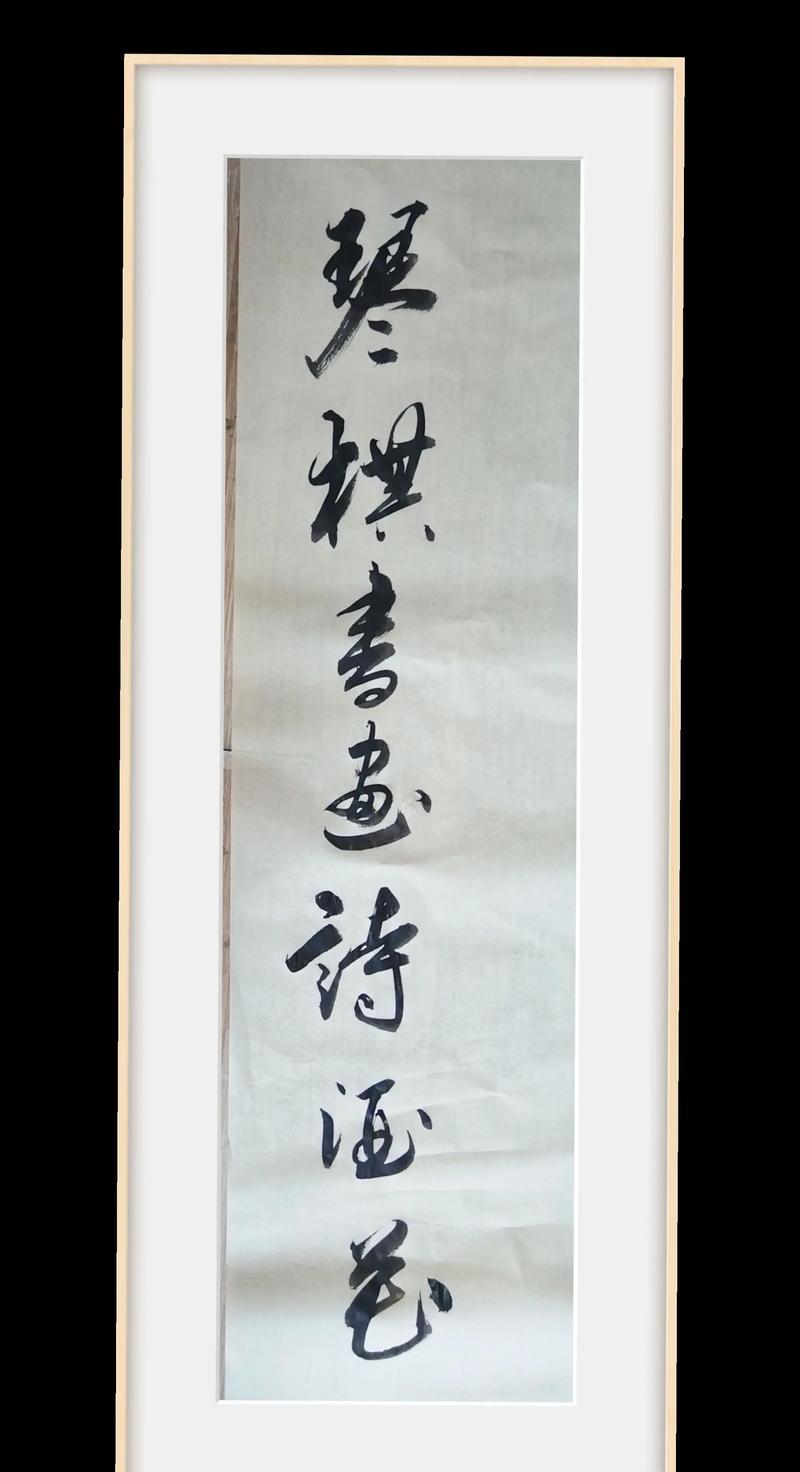 琴棋書画詩酒花